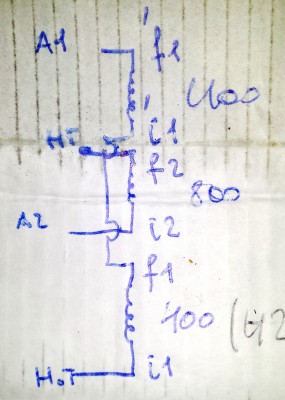 A1 f1
400
HT i1
f2
800
A2 i2
f1
400 (42
H.T i1